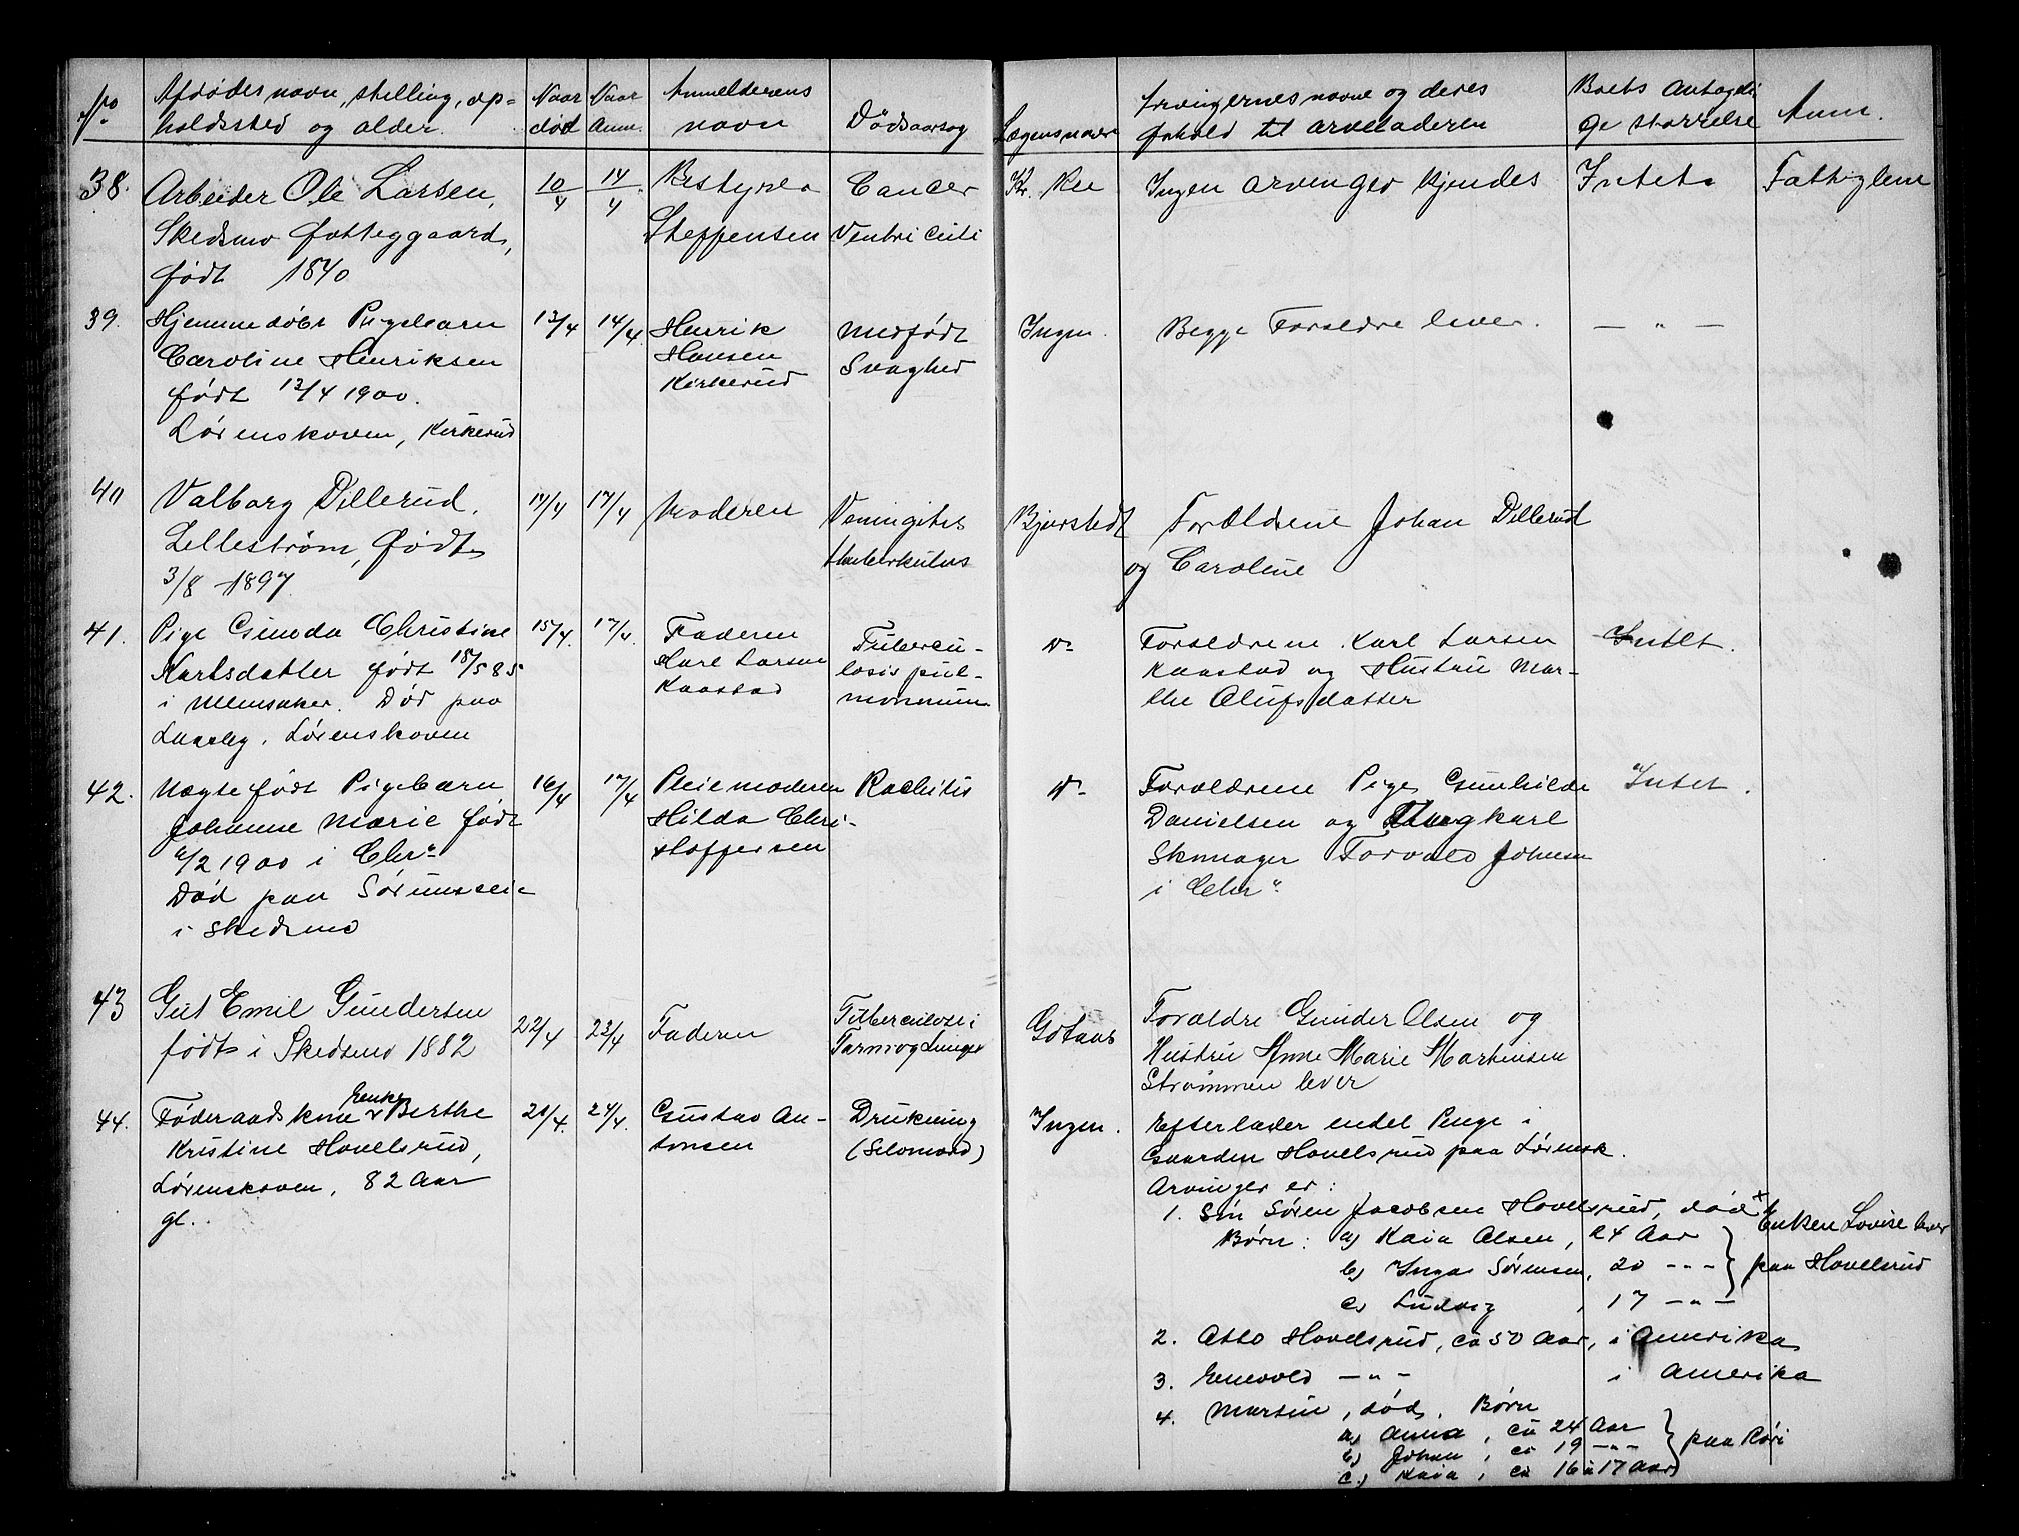 No
Afdødes navn, stilling, op=
holdssted og alder.
Naar
død
Naar
Anm.
Anmelderens
navn
Dødsaarsag
Lægens navn
Arvingernes navne og deres
forhold til arveladeren
Boets antageli
ge størrelse
Anm.
38. Arbeider Ole Larsen,
Skedsmo fattiggaard,
født 1840
10/4
14/4
Bestyrer
Steffensen
Cancer
Ventriculi
Kr. Ree
Ingen arvinger kjendes
Intet
Fattiglem
39. Hjemmedøbt Pigebarn
Caroline Henriksen
født 13/4 1900.
Lørenskoven, Kirkerud
13/4
14/4
Henrik
Hansen
Kirkerud
Medfødt
Svaghed
Ingen.
Begge Forældre lever.
— " —
40 Valborg Dillerud.
Lillestrøm, født
3/8 1897
14/4
17/4
Moderen
Meningitis
tuberkulos
Bjørstedt
Forældrene Johan Dillerud
og Caroline
41. Pige Gunda Christine
Karlsdatter født 18/5 85
i Ullensaker. Død paa
Laseby, Lørenskoven
15/4.
17/4.
Faderen
Karl Larsen
Kaastad
Tubercu-
losis pul-
monmum
D-
Forældrene Karl Larsen
Kaastad og Hustru Mar-
the Olufsdatter
Intet.
42. Uægtefødt Pigebarn
Johanne Marie født
/2 1900 i Chr"
Død paa Sørumsseie
i Skedsmo
16/4
17/4
Pleiemoderen
Hilda Chri-
stoffersen
Rachitis
D-
Forældrene Pige Gunhilde
Danielsen og Ungkarl
Skomager Torvald Johnsen
i Chr".
Intet.
43 Gut Emil Gundersen
født i Skedsmo 1882
22/4
23/4
Faderen
Tuberculose i
Tarm og Lunger
Gotaas
Forældre Gunder Olsen og
Hustru Anne Marie Martinsen
Strømmen lever
44. Føderaadskone Enke Berthe
Kristine Hovelsrud,
Lørenskoven, 82 Aar
gl.
21/4.
24/4.
Gustav An-
tonsen
Drukning
(Selvmord)
Ingen.
Efterlader endel Penge i
Gaarden Hovelsrud paa Lørensk.
Arvinger er:
1. Søn Søren Jacobsen Hovelsrud, død + Enken Lovise lever
Børn: a) Kaia Olsen, 24 Aar
b) Inga Sørensen, 20 -"- paa Hovelsrud
c) Ludvig, 17 -"-
2. Otto Hovelsrud, ca 50 Aar, i Amerika
3. Enevold -"- i Amerika
4. Martin, død. Børn
a) Anna, ca 24 Aar
b) Johan, ca 19 -"- paa
c) Kaia, ca 16 a 17 Aar